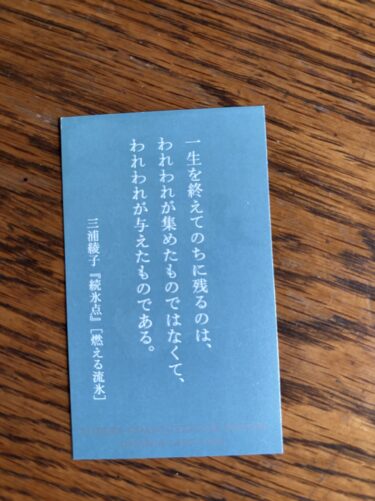 一生を終えてのちに残るのは、
われわれが集めたものではなくて、
われわれが与えたものである。
三浦綾子『続氷点』[燃える流氷]